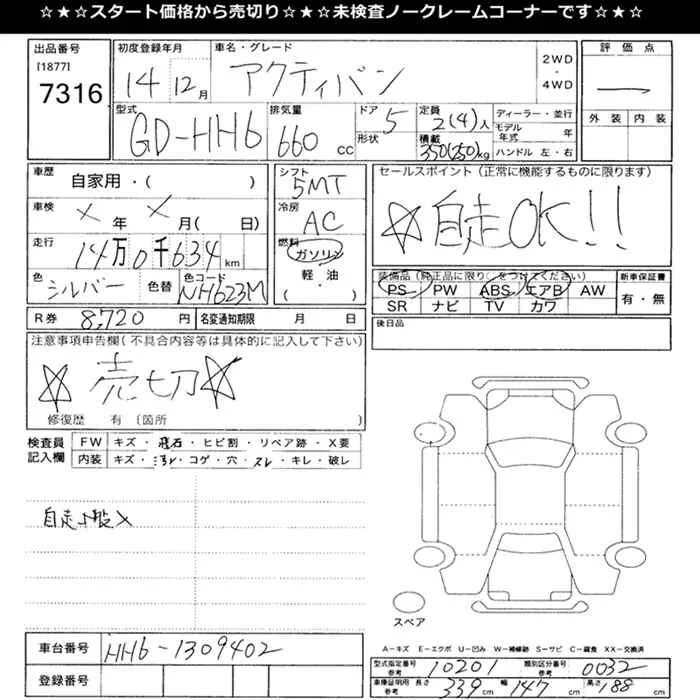 ☆★☆★スタート価格から売切り☆★☆★未検査ノークレームコーナーです☆★☆★☆
出品番号
[1877]
7316
初度登録年月
14 12月
車名・グレード
アクティバン
2WD
・
4WD
評価点
外装 内装
型式
GD-HH6
排気量
660 cc
ドア
5
形状
定員
2(4)人
積載
350(250)kg
ディーラー・並行
モデル年式 年
ハンドル 左・右
車歴
自家用・( )
車検
× 年 × 月( 日)
走行
14万0千634 km
色
シルバー
色替
色コード
NH623M
シフト
5MT
冷房
AC
燃料
ガソリン
軽・油
( )
セールスポイント(正常に機能するものに限ります)
☆自走OK!!
装備品(純正品に限り○をつけてください)
PS PW ABS エアB AW
SR ナビ TV カワ
新車保証書
有・無
R券 8,720 円
名変通知期限 月 日
後日品
注意事項申告欄(不具合内容等は具体的に記入して下さい)
☆売切☆
修復歴 有 〔箇所
検査員
記入欄
FW キズ・飛石・ヒビ割・リペア跡・X要
内装 キズ・汚れ・コゲ・穴・スレ・キレ・破レ
スペア
A−キズ E−エクボ U−凹み W−補修跡 S−サビ C−腐食 XX−交換済
車台番号 HH6-1309402
登録番号
型式指定番号
参考
10201
類別区分番号
参考
0032
車検証明用
参考
長さ 339 cm 幅 147 cm 高さ 188 cm